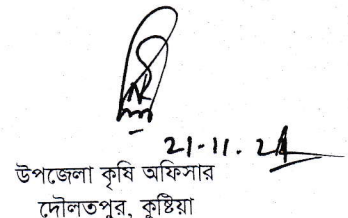 21-11-24
উপজেলা কৃষি অফিসার
দৌলতপুর, কুষ্টিয়া